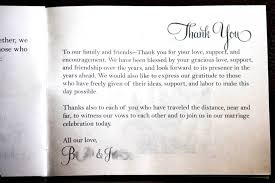 ether, we
hose who
Thank You
To our family and friends—Thank you for your love, support, and
encouragement. We have been blessed by your gracious love, support, and
friendship over the years, and look forward to its presence in the
years ahead. We would also like to express our gratitude to those
who have freely given of their ideas, support, and labor to make this
day possible
Thanks also to each of you who have traveled the distance, near and
far, to witness our vows to each other and to join us in our marriage
celebration today.
All our love,
&